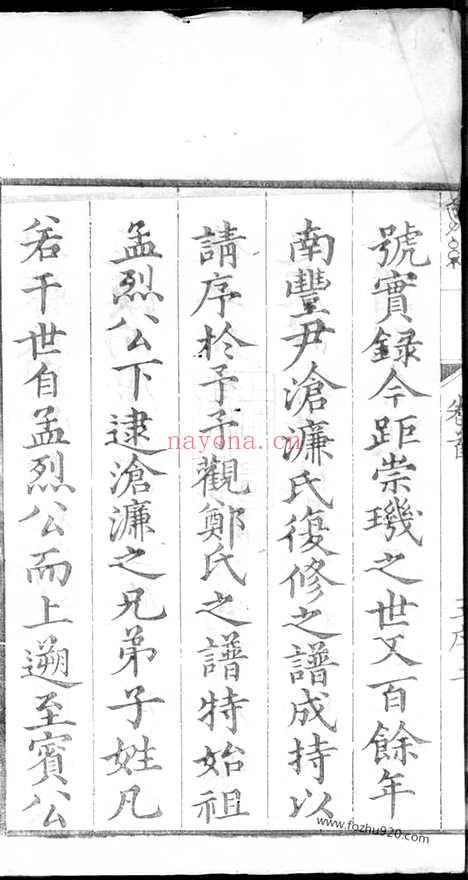 號實録今距崇璣之世又百餘年
南豐尹滄濂氏復修之譜成持以
請序於予予觀鄭氏之譜特始祖
孟烈公下逮滄濂之兄弟子姓凡
若干世自孟烈公而上遡至賓公
卷首
nayona.cn
www.fozhu920.com